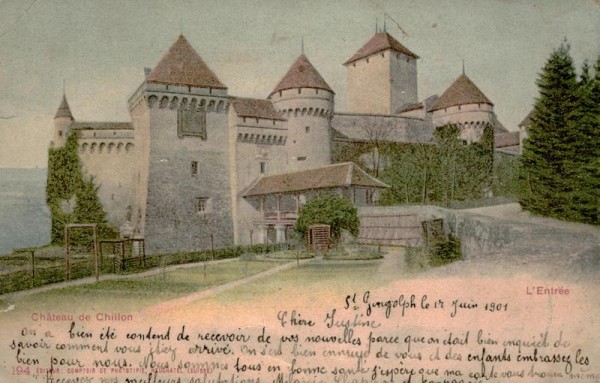 St Gingolph le 17 Juin 1901
L'Entrée
Château de Chillon
Chère Justine
On a bien été contend de recevoir de vos nouvelles parce que on était bien inquiet de
savoir comment vous étiez arrivé. On s'est bien ennuyé de vous et des enfants embrassez les
bien pour nous. Nous sommes tous en bonne santé j'espère que ma carte vous trouve
194 EDITEUR: COMPTOIR DE PHOTOTYPIE, NEUCHATEL (SUISSE)
Recevez nos meilleurs salutations